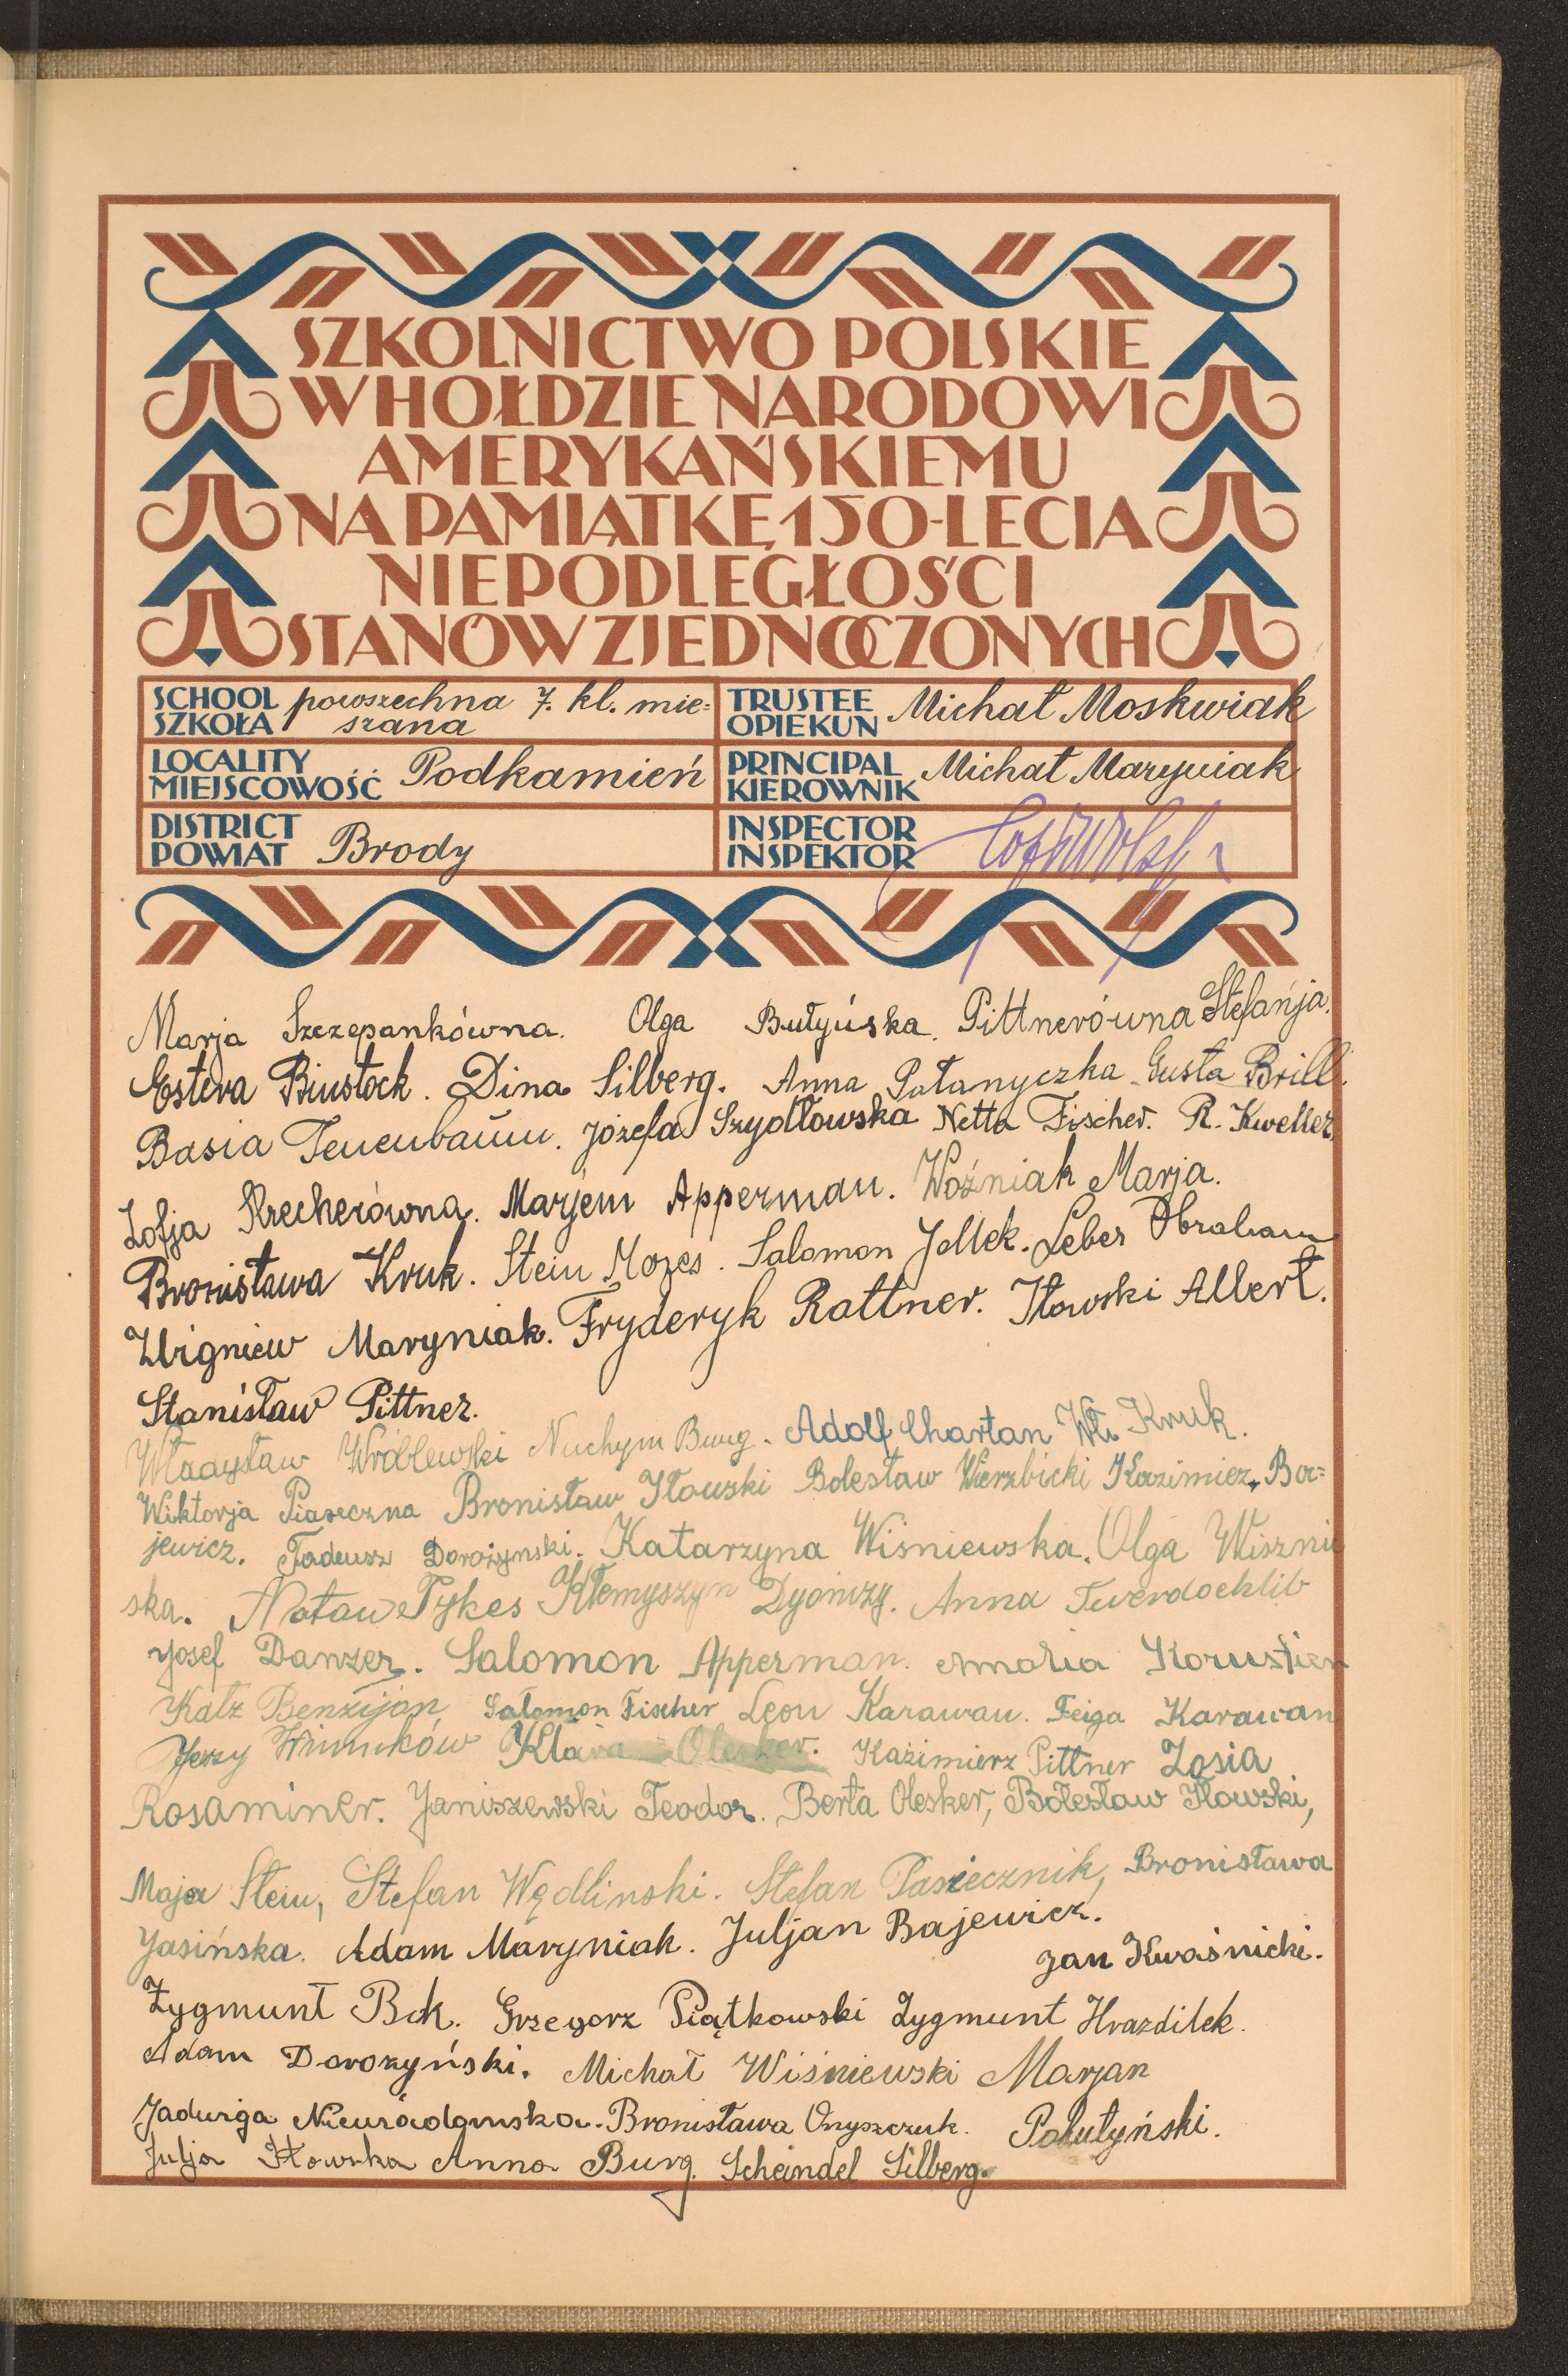 SZKOLNICTWO POLSKIE
W HOŁDZIE NARODOWI
AMERYKAŃSKIEMU
NA PAMIĄTKĘ 150-LECIA
NIEPODLEGŁOŚCI
STANÓW ZJEDNOCZONYCH
SCHOOL SZKOŁA powszechna 7. kl. mie=
szana
TRUSTEE OPIEKUN Michał Moskwiak
LOCALITY MIEJSCOWOŚĆ Podkamień
PRINCIPAL KIEROWNIK Michał Maryniak
DISTRICT POWIAT Brody
INSPECTOR INSPEKTOR
Marja Szczepankówna. Olga Butyńska. Pittnerówna Stefanja.
Estera Binstock. Dina Silberg. Anna Patanyczka Gusta Brill.
Basia Tenenbaum. Józefa Szydłowska Netta Fischer. R. Kweller,
Zofja Krecherówna. Marjem Apperman. Woźniak Marja.
Bronisława Kruk. Stein Mozes. Salomon Jollek. Leber Abraham
Zbigniew Maryniak. Fryderyk Rattner. Iłowski Albert.
Stanisław Pittner.
Władysław Wróblewski Nuchym Burg. Adolf Chartan Wł. Kruk.
Wiktorja Piaseczna Bronisław Iłowski Bolesław Wierzbicki Kazimierz Ba=
jewicz. Tadeusz Dorożynski. Katarzyna Wiśniewska. Olga Wiszniu
ska. Natan Tykes Kłemyszyn Dyonizy. Anna Twerdochlib
Josef Danzer. Salomon Apperman. Amalia
Katz Benzijan Salomon Fischer Leon Karawan. Feiga Karawan
Jerzy Klara Olesker. Kazimierz Pittner Zosia
Rosaminer. Janiszewski Teodor. Berta Olesker, Bolesław Iłowski,
Maja Stein, Stefan Wędlinski. Stefan Pasiecznik, Bronisława
Jasińska. Adam Maryniak. Juljan Bajewicz.
Jan Kwaśnicki.
Zygmunt Bck. Grzegorz Piątkowski Zygmunt Hrazdilek.
Adam Dorożyński. Michał Wiśniewski Marjan
Jadwiga Bronisława Onyszczuk. Pokutyński.
Julja Iłowska Anna Burg. Scheindel Silberg.